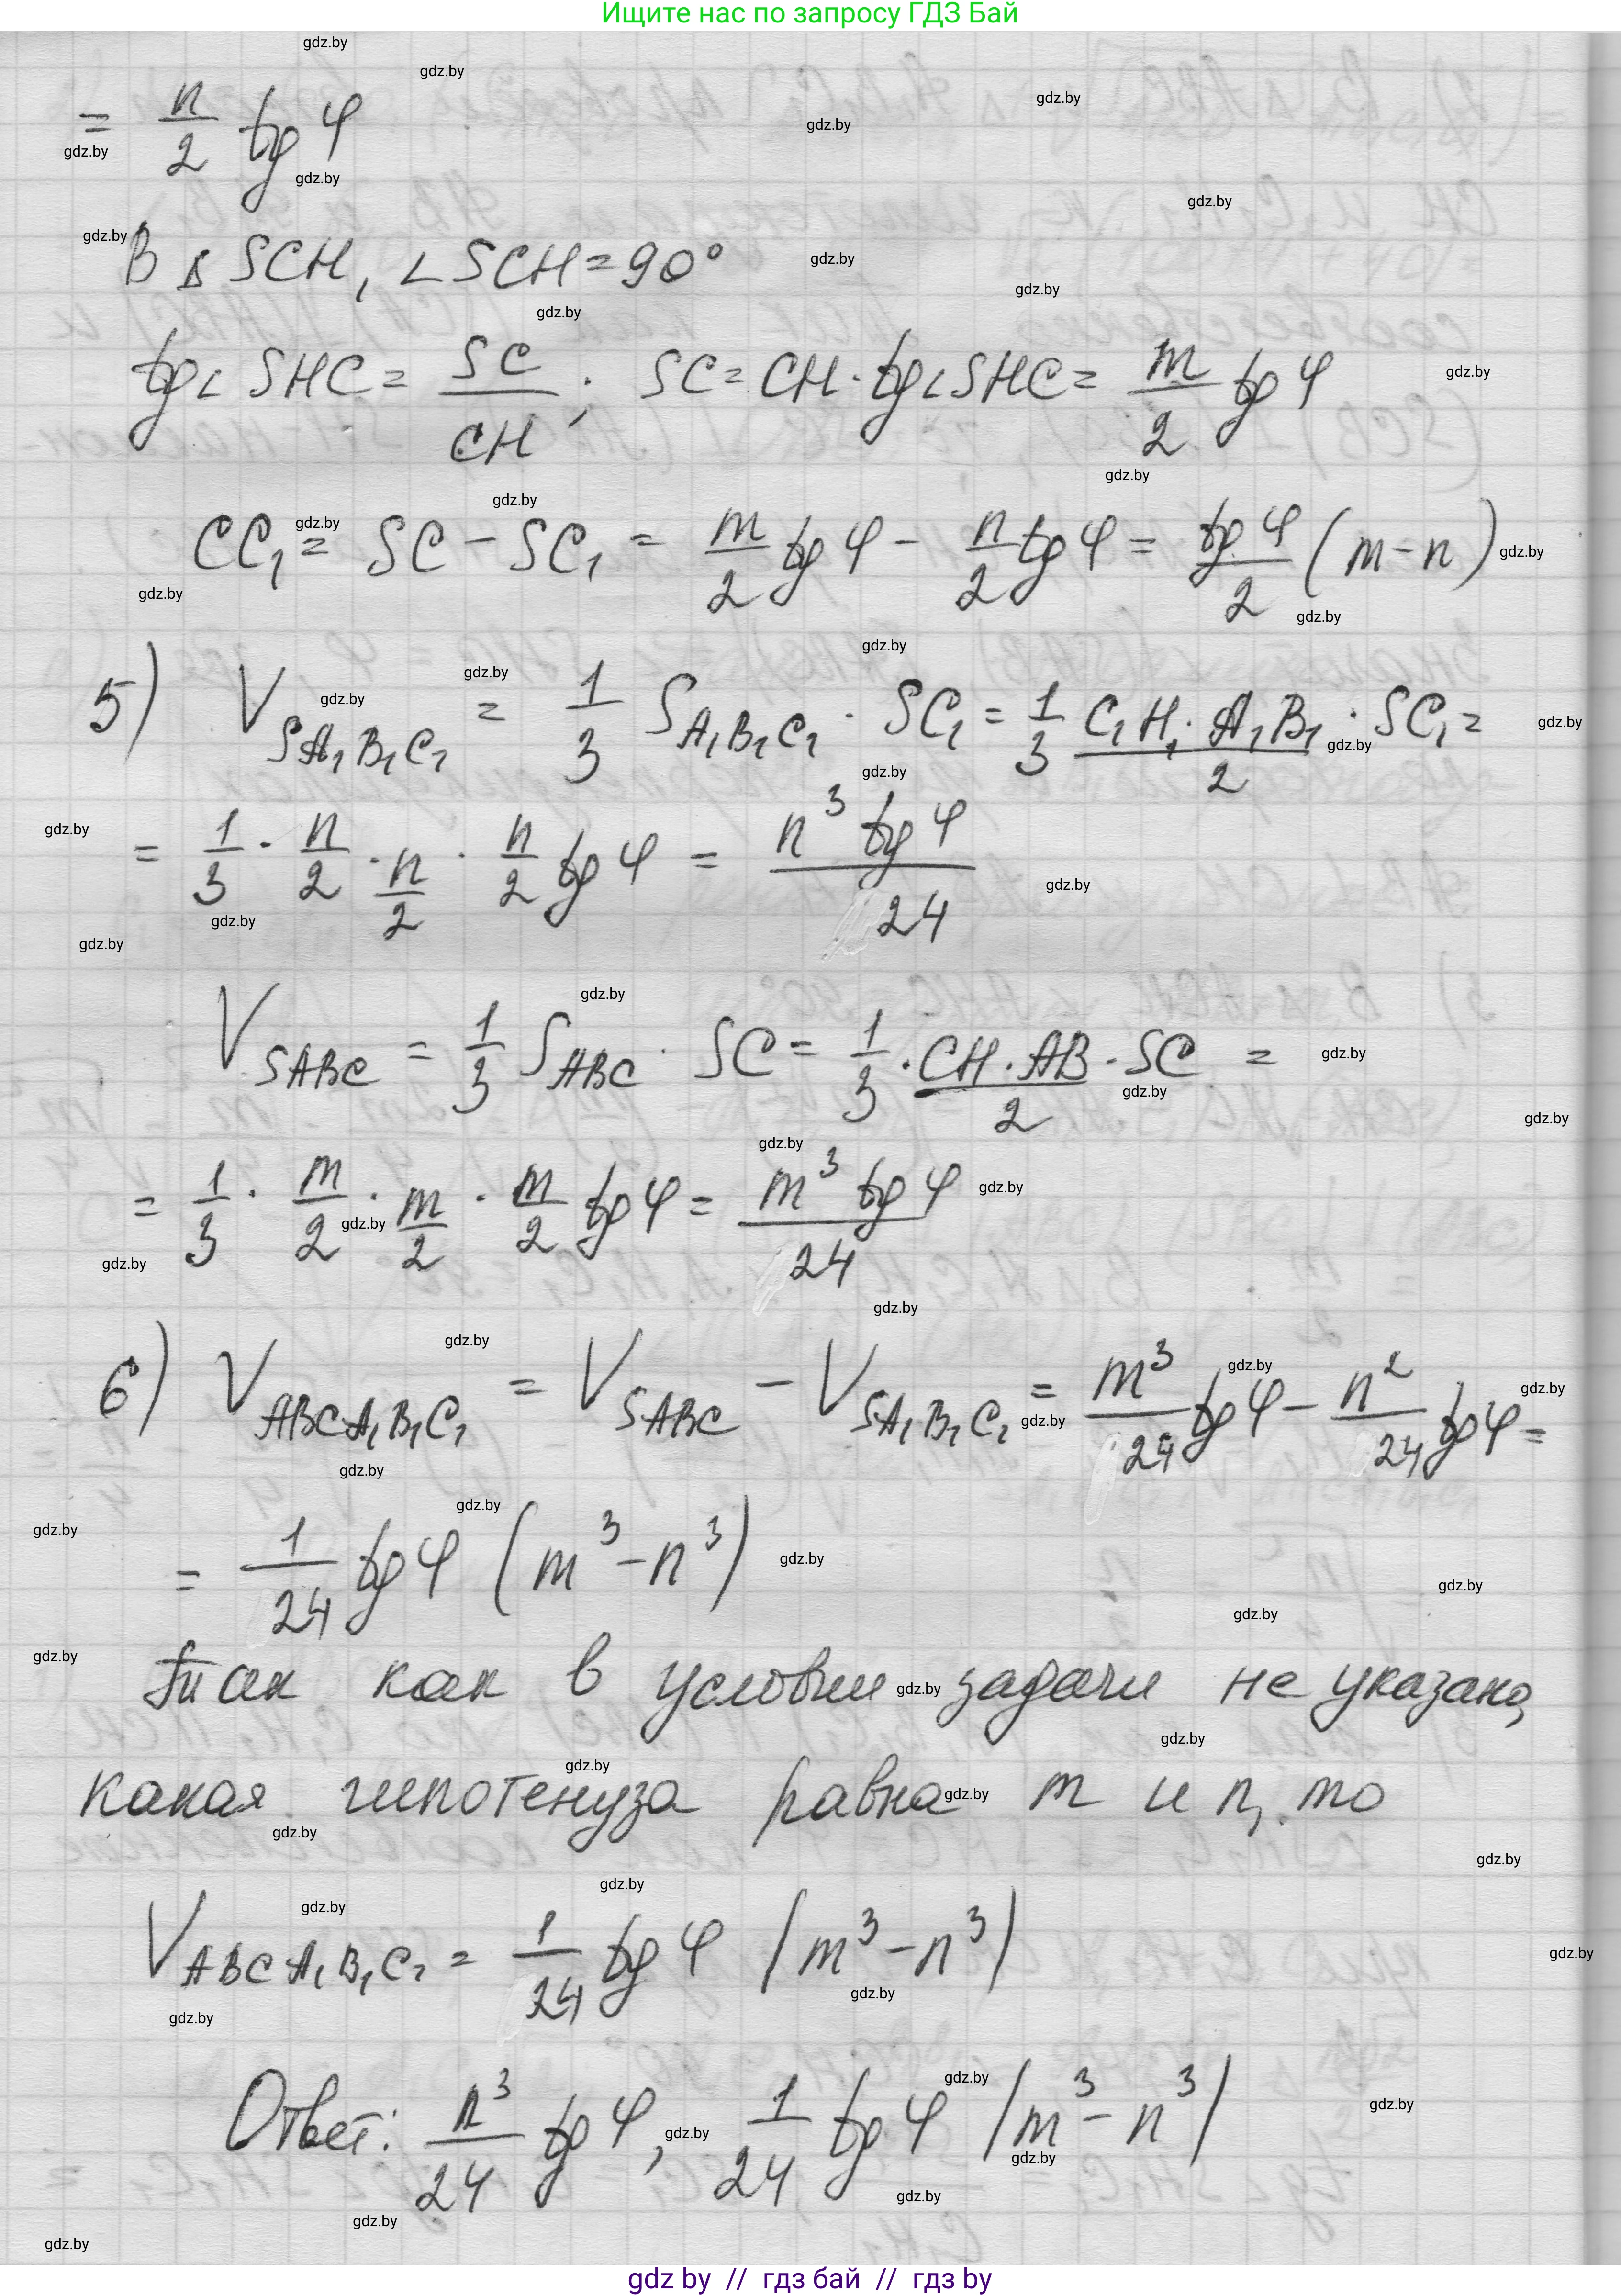 Ищите нас по запросу ГДЗ Бай
= n/2 tg φ
В Δ SCH, ∠SCH = 90°
tg∠ SHC = SC/CH; SC = CH · tg∠SHC = m/2 tg φ
CC₁ = SC − SC₁ = m/2 tg φ − n/2 tg φ = tg φ/2 (m − n)
5) V_{SA₁B₁C₁} = 1/3 S_{A₁B₁C₁} · SC₁ = 1/3 C₁H₁ · A₁B₁/2 · SC₁ =
= 1/3 · n/2 · n/2 · n/2 tg φ = n³ tg φ/24
V_{SABC} = 1/3 S_{ABC} · SC = 1/3 · CH · AB/2 · SC =
= 1/3 · m/2 · m/2 · m/2 tg φ = m³ tg φ/24
6) V_{ABCA₁B₁C₁} = V_{SABC} − V_{SA₁B₁C₁} = m³/24 tg φ − n²/24 tg φ =
= 1/24 tg φ (m³ − n³)
Так как в условии задачи не указано,
какая гипотенуза равна m и n, то
V_{ABCA₁B₁C₁} = 1/24 tg φ |m³ − n³|
Ответ: n³/24 tg φ, 1/24 tg φ |m³ − n³|
gdz by // гдз бай // гдз by